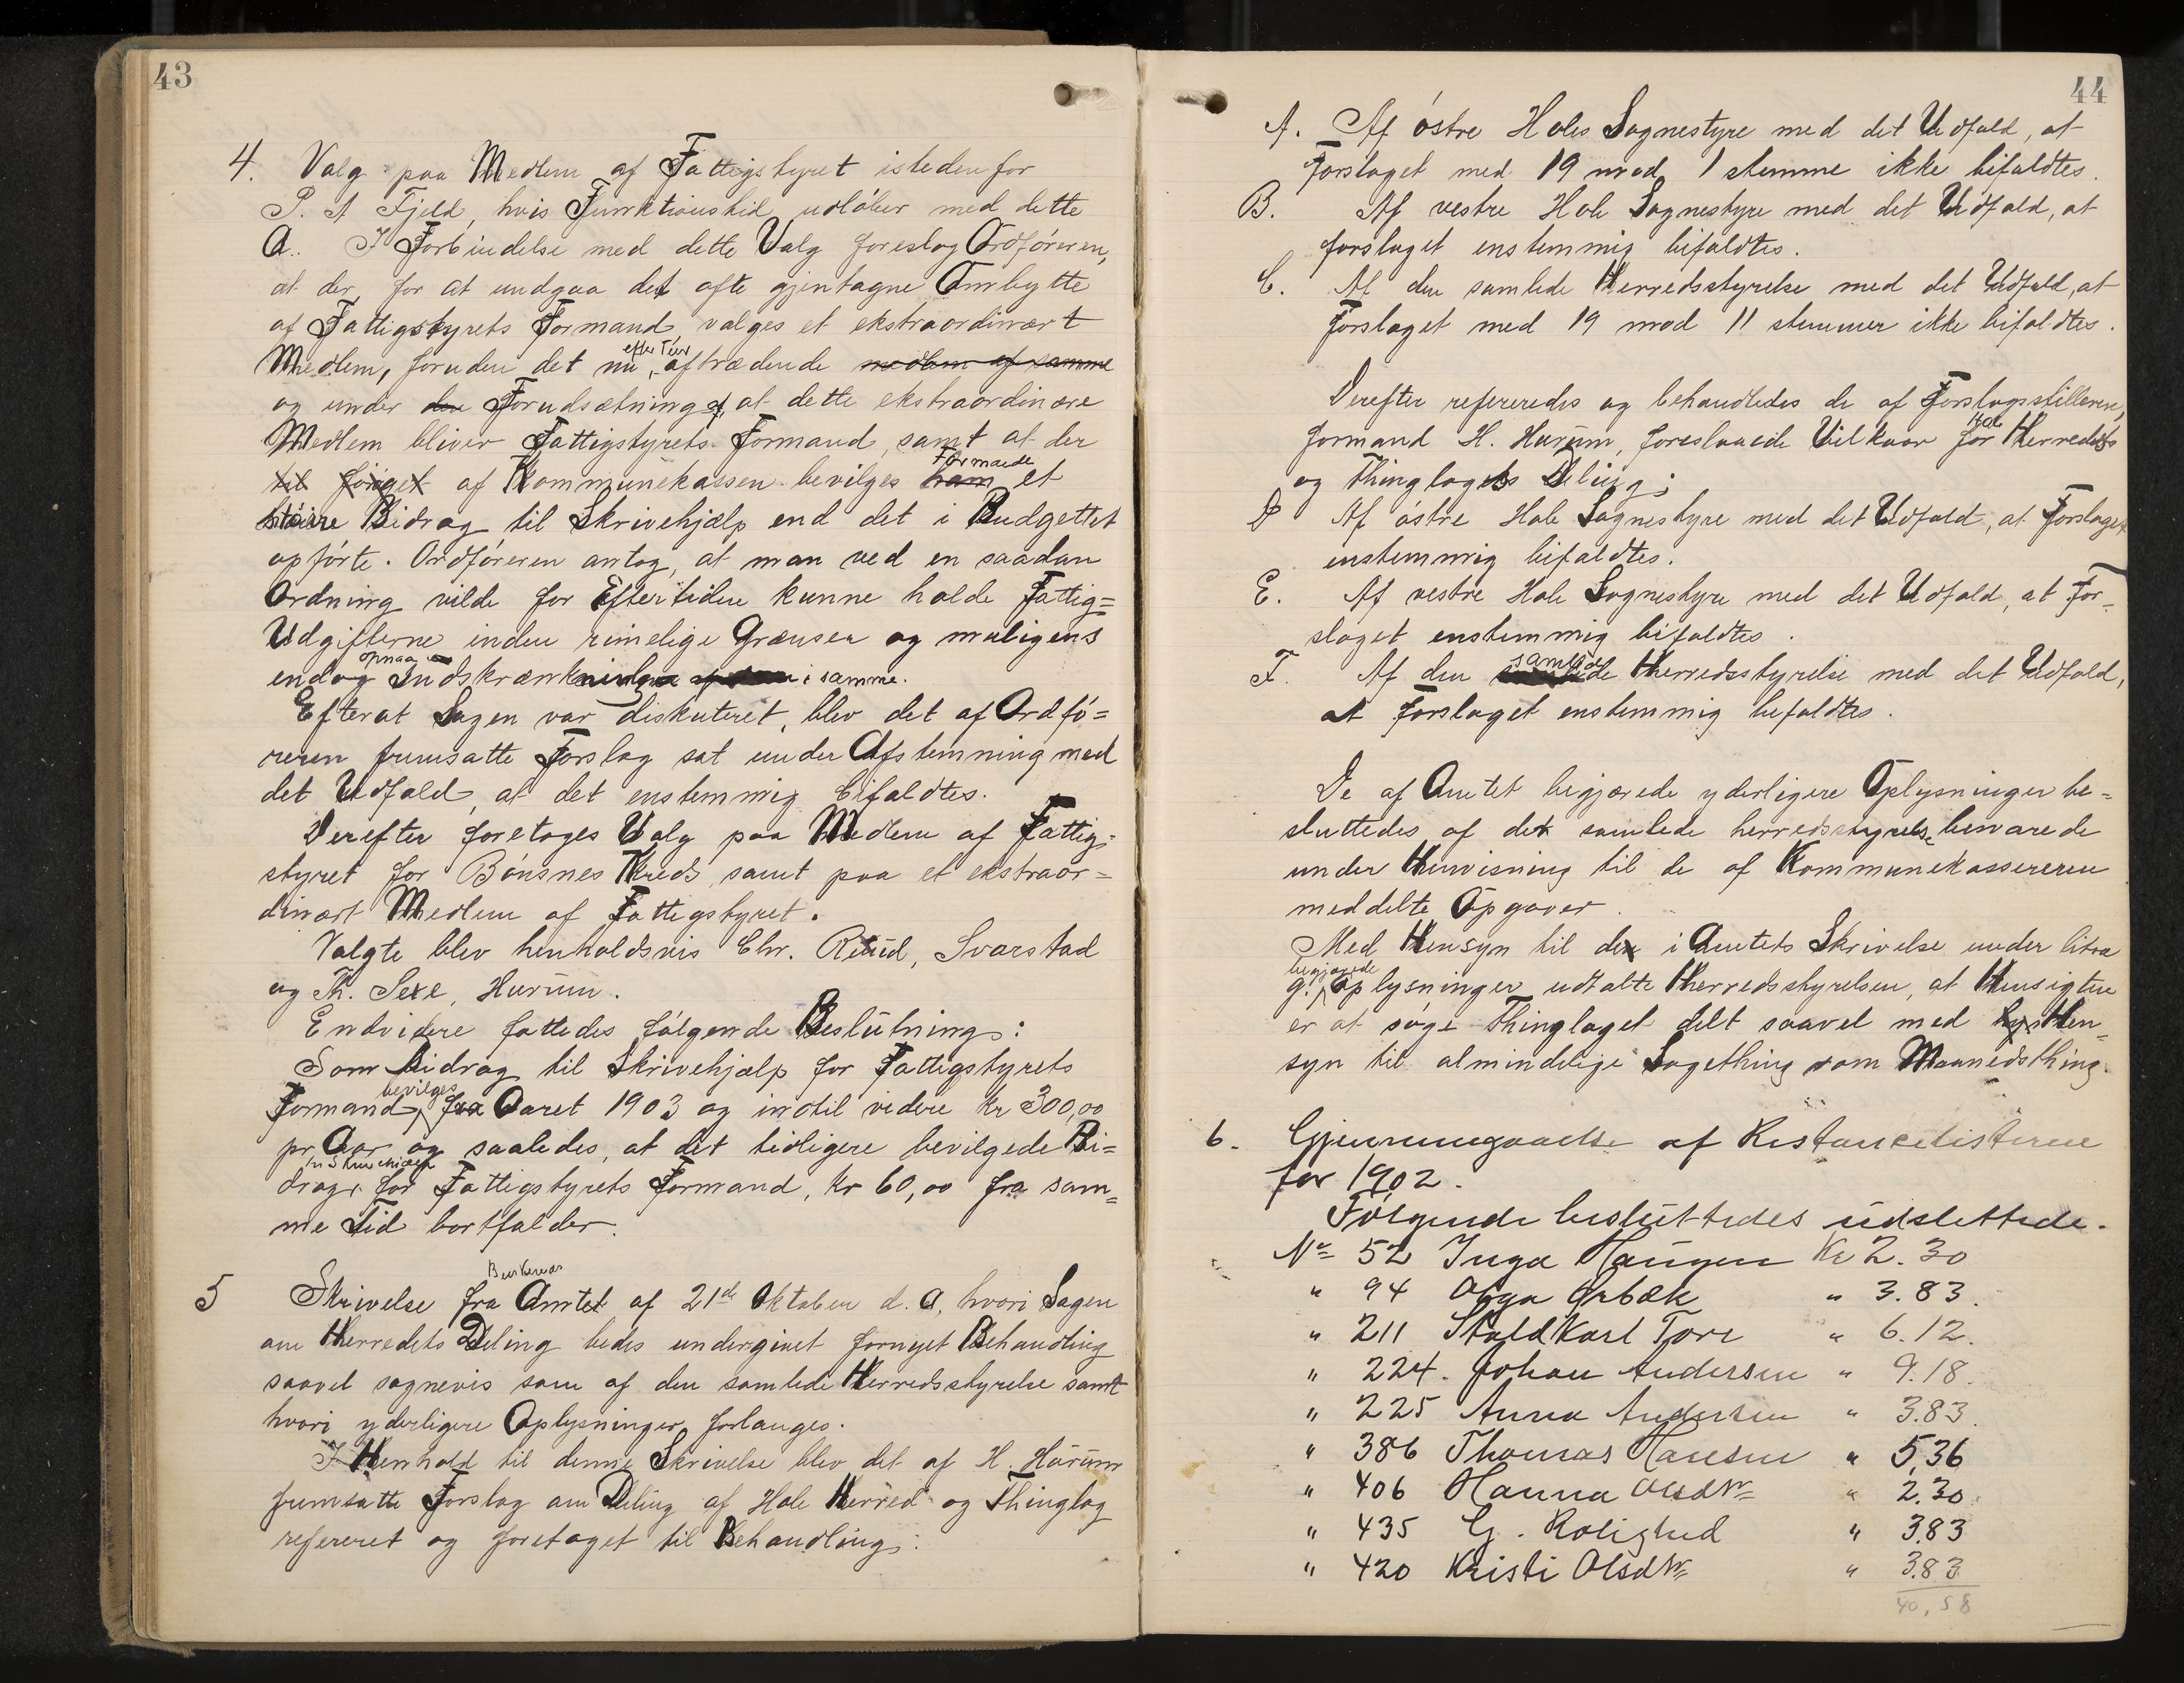 43
4. Valg paa Medlem af Fattigstyret istedenfor
P. A Fjeld, hvis Funktionstid udløber med dette
A. I Forbindelse med dette Valg foreslog Ordføreren,
at der, for at undgaa det ofte gjentagne Ombytte
af Fattigstyrets Formand, valges et ekstraordinært
Medlem, foruden det nu, efter Tur aftrædende medlem af samme
og under den Forudsætning af at dette ekstraordinære
Medlem bliver Fattigstyrets Formand, samt at der
af Kommunekassen bevilges ham Formande et
større Bidrag til Skrivehjælp end det i Budgettet
opførte. Ordføreren antog, at man ved en saadan
Ordning vilde for Eftertiden kunne holde Fattig=
Udgifterne inden rimelige Grænser og muligens
endog opnaa Indskrænkninger i samme.
Efterat Sagen var diskuteret, blev det af Ordfø=
reren fremsatte Forslag sat under Afstemning med
det Udfald, at det enstemmig bifaldtes.
Derefter foretoges Valg paa Medlem af Fattig=
styret for Bønsnes Kreds, samt paa et ekstraor=
dinært Medlem af Fattigstyret.
Valgte blev henholdsvis Chr. Rudd, Svarstad
og Th. Sexe, Hurum.
Endvidere fattedes følgende Beslutning:
Som Bidrag til Skrivehjælp for Fattigstyrets
Formand, bevilges fra Aaret 1903 og indtil videre kr 300,00
pr Aar og saaledes, at det tidligere bevilgede Bi=
drag, til Skrivehjælp for Fattigstyrets Formand, kr 60,00 fra sam=
me Tid bortfalder.
5 Skrivelse fra Buskeruds Amtet af 21de Oktober d. A, hvori Sagen
om Herredets Deling bedes undergivet fornyet Behandling
saavel sognevis som af den samlede Herredsstyrelse samt
hvori yderligere Oplysninger forlanges.
I Henhold til denne Skrivelse blev det af H. Hurum
fremsatte Forslag om Deling af Hole Herred og Thinglag
refereret og foretaget til Behandling:
44
A. Af østre Holes Sognestyre med det Udfald, at
Forslaget med 19 mod 1 stemme ikke bifaldtes.
B. Af vestre Hole Sognestyre med det Udfald, at
forslaget enstemmig bifaldtes.
C. Af den samlede Herredsstyrelse med det Udfald, at
Forslaget med 19 mod 11 stemmer ikke bifaldtes.
Derefter refereredes og behandledes de af Forslagsstilleren,
formand H. Hurum, foreslaaede Vilkaar for Hole Herredets
og Thinglagets Deling;
D Af østre Hole Sognestyre med det Udfald, at Forslaget
enstemmig bifaldtes.
E. Af vestre Hole Sognestyre med det Udfald, at For=
slaget enstemmig bifaldtes.
F. Af den samlede Herredsstyrelse med det Udfald,
at Forslaget enstemmig bifaldtes.
De af Amtet begjærede yderligere Oplysninger be=
sluttedes af det samlede herredsstyrelse bevarede
under Henvisning til de af Kommunekassereren
meddelte Opgaver.
Med Hensyn til de i Amtets Skrivelse under litra
g. begjærede Oplysninger udtalte Herredsstyrelsen, at Hensigten
er at søge Thinglaget delt saavel med Hen=
syn til almindelige Sagething som Maanedsthing.
6. Gjennemgaaelse af Restancelisterne
for 1902.
Følgende besluttedes udslettede.
No 52 Inga Haugen Kr 2.30
" 94 Olga Ørbæk " 3.83.
" 211 Stald Karl Tore " 6.12.
" 224. Johan Andersen " 9.18.
" 225 Anna Andersen " 3.83.
" 386 Thomas Hansen " 5,36
" 406 Hanna Olsdtr " 2.30.
" 435 G. Rolighed " 3.83
" 420 Kristi Olsdtr " 3.83
40,58